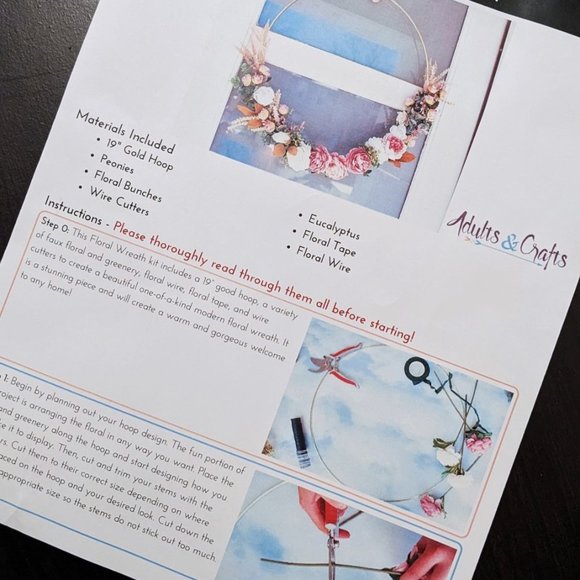 Materials Included
• 19" Gold Hoop
• Peonies
• Floral Bunches
• Wire Cutters
• Eucalyptus
• Floral Tape
• Floral Wire
Adults & Crafts
Instructions - Please thoroughly read through them all before starting!
Step 0: This Floral Wreath kit includes a 19" good hoop, a variety
of faux floral and greenery, floral wire, floral tape, and wire
cutters to create a beautiful one-of-a-kind modern floral wreath. It
is a stunning piece and will create a warm and gorgeous welcome
to any home!
1: Begin by planning out your hoop design. The fun portion of
project is arranging the floral in any way you want. Place the
and greenery along the hoop and start designing how you
it to display. Then, cut and trim your stems with the
Cut them to their correct size depending on where
on the hoop and your desired look. Cut down the
appropriate size so the stems do not stick out too much.